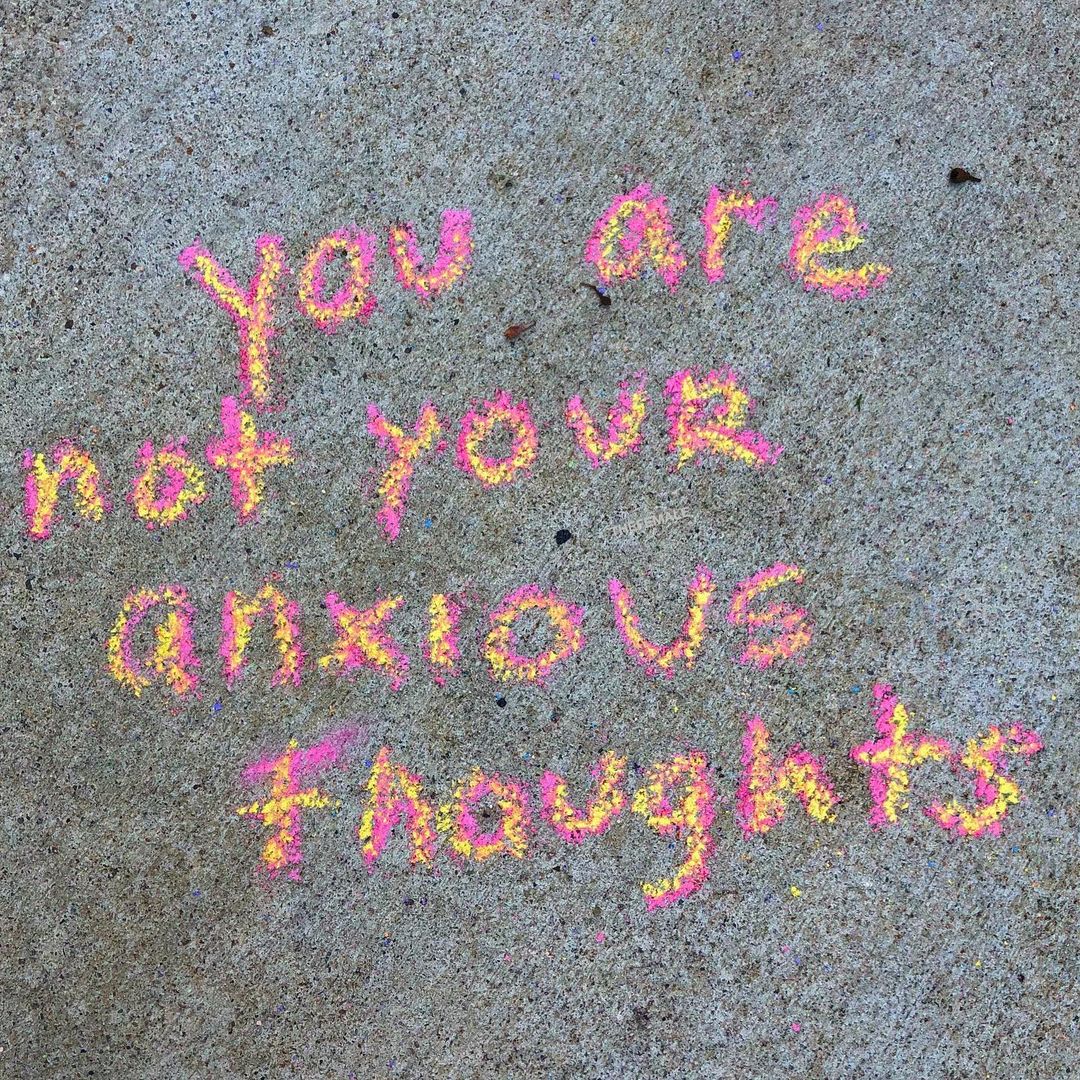 you are
not youR
anxious
thoughts